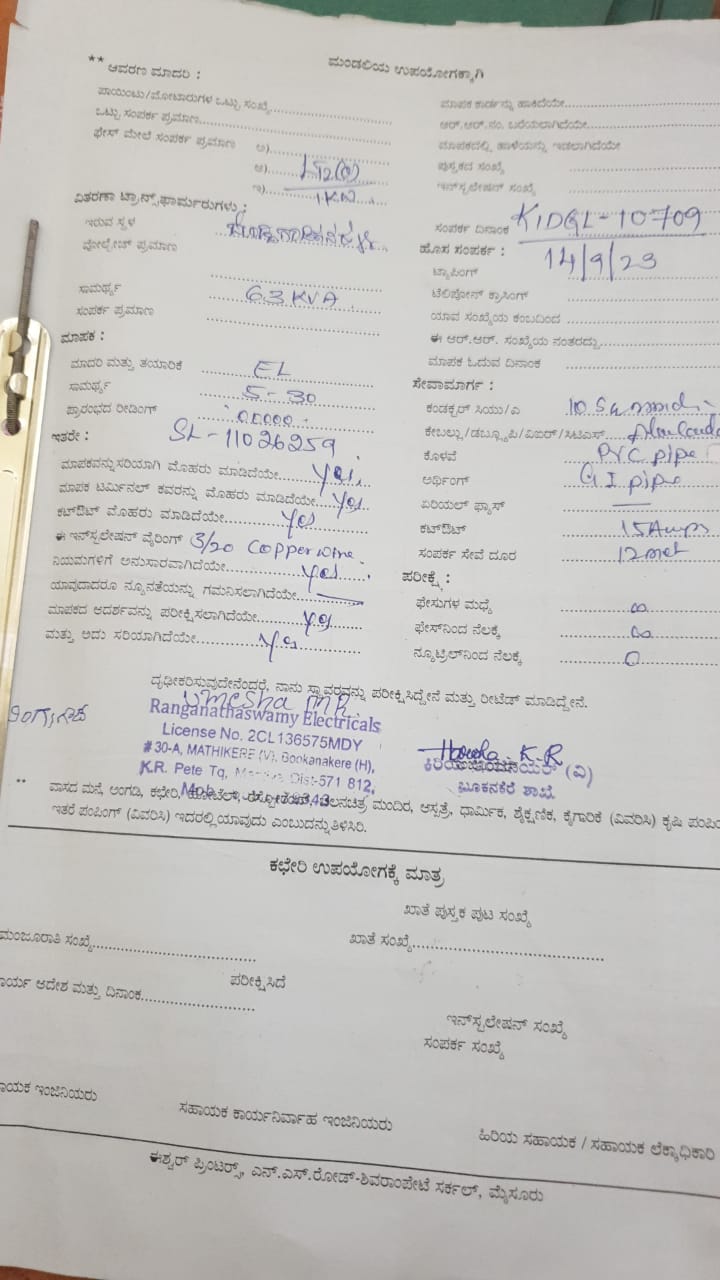 ಮಂಡಲಿಯ ಉಪಯೋಗಕ್ಕಾಗಿ
** ಆವರಣ ಮಾದರಿ :
ಪಾಯಿಂಟು/ಮೋಟಾರುಗಳ ಒಟ್ಟು ಸಂಖ್ಯೆ
ಒಟ್ಟು ಸಂಪರ್ಕ ಪ್ರಮಾಣ
ಫೇಸ್ ಮೇಲೆ ಸಂಪರ್ಕ ಪ್ರಮಾಣ ಅ)
ಆ) LT2(a)
ಇ) 1KW
ವಿತರಣಾ ಟ್ರಾನ್ಸ್‌ಫಾರ್ಮರುಗಳು :
ಇರುವ ಸ್ಥಳ
ವೋಲ್ಟೇಜ್ ಪ್ರಮಾಣ
ಸಾಮರ್ಥ್ಯ 63 KVA
ಸಂಪರ್ಕ ಪ್ರಮಾಣ
ಮಾಪಕ :
ಮಾದರಿ ಮತ್ತು ತಯಾರಿಕೆ EL
ಸಾಮರ್ಥ್ಯ 5-30
ಪ್ರಾರಂಭದ ರೀಡಿಂಗ್ 00000
ಇತರೇ : SL-11026259
ಮಾಪಕವನ್ನು ಸರಿಯಾಗಿ ಮೊಹರು ಮಾಡಿದೆಯೇ Yes
ಮಾಪಕ ಟರ್ಮಿನಲ್ ಕವರನ್ನು ಮೊಹರು ಮಾಡಿದೆಯೇ Yes
ಕಟ್‌ಔಟ್ ಮೊಹರು ಮಾಡಿದೆಯೇ Yes
ಈ ಇನ್‌ಸ್ಟಲೇಷನ್ ವೈರಿಂಗ್ 3/20 Copper wire
ನಿಯಮಗಳಿಗೆ ಅನುಸಾರವಾಗಿದೆಯೇ Yes
ಯಾವುದಾದರೂ ನ್ಯೂನತೆಯನ್ನು ಗಮನಿಸಲಾಗಿದೆಯೇ
ಮಾಪಕದ ಆದರ್ಶವನ್ನು ಪರೀಕ್ಷಿಸಲಾಗಿದೆಯೇ Yes
ಮತ್ತು ಅದು ಸರಿಯಾಗಿದೆಯೇ Yes
ಮಾಪಕ ಕಾರ್ಡನ್ನು ಹಾಕಿದೆಯೇ
ಆರ್.ಆರ್.ನಂ. ಬರೆಯಲಾಗಿದೆಯೇ
ಮಾಪಕದಲ್ಲಿ ಹಾಳೆಯನ್ನು ಇಡಲಾಗಿದೆಯೇ
ಪುಸ್ತಕದ ಸಂಖ್ಯೆ
ಇನ್‌ಸ್ಟಲೇಷನ್ ಸಂಖ್ಯೆ
ಸಂಪರ್ಕ ದಿನಾಂಕ KIDGL-10709
ಹೊಸ ಸಂಪರ್ಕ : 14/9/23
ಟ್ಯಾಪಿಂಗ್
ಟೆಲಿಪೋನ್ ಕ್ರಾಸಿಂಗ್
ಯಾವ ಸಂಖ್ಯೆಯ ಕಂಬದಿಂದ
ಈ ಆರ್.ಆರ್. ಸಂಖ್ಯೆಯ ನಂತರದ್ದು
ಮಾಪಕ ಓದುವ ದಿನಾಂಕ
ಸೇವಾಮಾರ್ಗ :
ಕಂಡಕ್ಟರ್ ಸಿಯು/ಎ 10 Sq mm
ಕೇಬಲ್ಲು/ಡಬ್ಲ್ಯೂಪಿ/ವಿಐಆರ್/ಸಿಟಿಎಸ್
ಕೊಳವೆ PVC pipe
ಅರ್ಥಿಂಗ್ G I pipe
ಏರಿಯಲ್ ಫ್ಯಾಸ್
ಕಟ್‌ಔಟ್ 15 Amps
ಸಂಪರ್ಕ ಸೇವೆ ದೂರ 12 met
ಪರೀಕ್ಷೆ :
ಫೇಸುಗಳ ಮಧ್ಯೆ ∞
ಫೇಸ್‌ನಿಂದ ನೆಲಕ್ಕೆ ∞
ನ್ಯೂಟ್ರಿಲ್‌ನಿಂದ ನೆಲಕ್ಕೆ 0
ದೃಢೀಕರಿಸುವುದೇನೆಂದರೆ, ನಾನು ಸ್ಥಾವರವನ್ನು ಪರೀಕ್ಷಿಸಿದ್ದೇನೆ ಮತ್ತು ರೀಟೆಡ್ ಮಾಡಿದ್ದೇನೆ.
Umesha M R
Ranganathaswamy Electricals
License No. 2CL136575MDY
#30-A, MATHIKERE (V), Bonkanakere (H),
K.R. Pete Tq, Dist-571 812,
K.R
ಕಿರಿಯ ಇಂಜಿನಿಯರ್ (ವಿ)
ಮೂಕನಕೆರೆ ಶಾಖೆ
** ವಾಸದ ಮನೆ, ಅಂಗಡಿ, ಕಛೇರಿ, ಹೋಟೆಲ್, ಚಲನಚಿತ್ರ ಮಂದಿರ, ಆಸ್ಪತ್ರೆ, ಧಾರ್ಮಿಕ, ಶೈಕ್ಷಣಿಕ, ಕೈಗಾರಿಕೆ (ವಿವರಿಸಿ) ಕೃಷಿ
ಇತರೆ ಪಂಪಿಂಗ್ (ವಿವರಿಸಿ) ಇದರಲ್ಲಿ ಯಾವುದು ಎಂಬುದನ್ನು ತಿಳಿಸಿರಿ.
ಕಛೇರಿ ಉಪಯೋಗಕ್ಕೆ ಮಾತ್ರ
ಖಾತೆ ಪುಸ್ತಕ ಪುಟ ಸಂಖ್ಯೆ
ಮಂಜೂರಾತಿ ಸಂಖ್ಯೆ
ಖಾತೆ ಸಂಖ್ಯೆ
ಪರೀಕ್ಷಿಸಿದೆ
ಆದೇಶ ಮತ್ತು ದಿನಾಂಕ
ಇನ್‌ಸ್ಟಲೇಷನ್ ಸಂಖ್ಯೆ
ಸಂಪರ್ಕ ಸಂಖ್ಯೆ
ಇಂಜಿನಿಯರು
ಸಹಾಯಕ ಕಾರ್ಯನಿರ್ವಾಹ ಇಂಜಿನಿಯರು
ಹಿರಿಯ ಸಹಾಯಕ / ಸಹಾಯಕ ಲೆಕ್ಕಾಧಿಕಾರಿ
ಈಶ್ವರ್ ಪ್ರಿಂಟರ್ಸ್, ಎನ್.ಎಸ್.ರೋಡ್-ಶಿವರಾಂಪೇಟೆ ಸರ್ಕಲ್, ಮೈಸೂರು